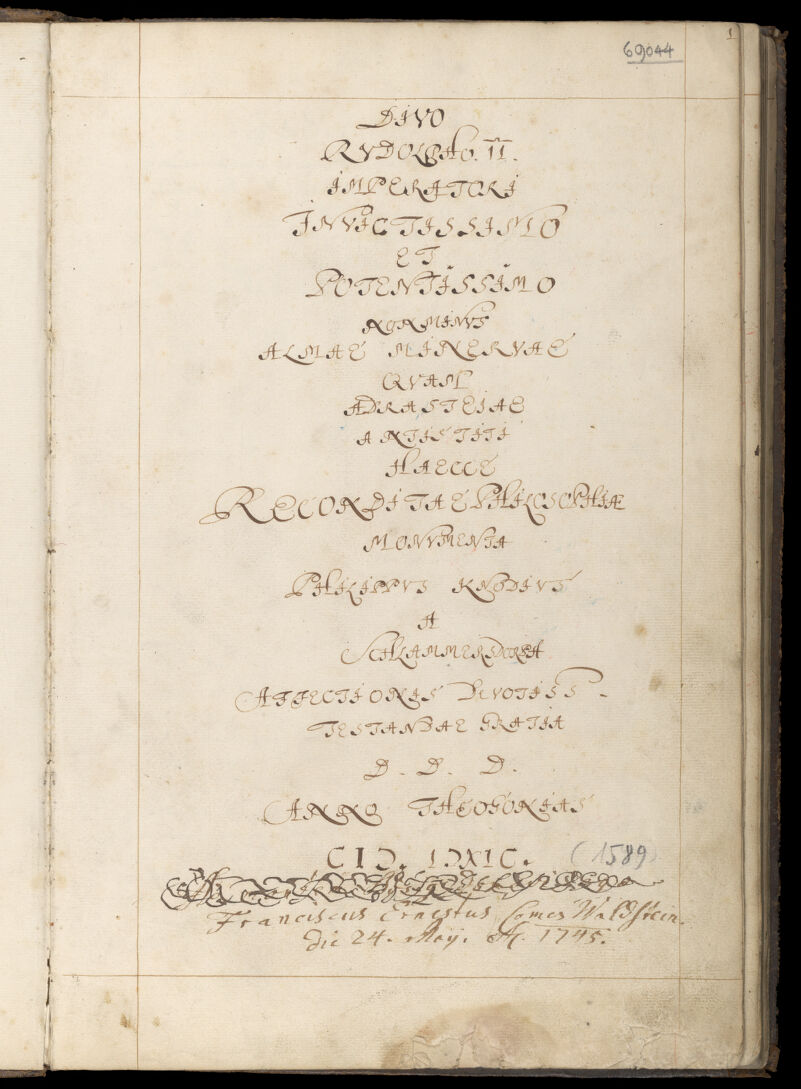 1
69044
DIVO
RVDOLPHO. II.
IMPERATORI
INVICTISSIMO
ET
POTENTISSIMO
ALMAE MINERVAE
QVAM
ADRASTEIAE
ANTISTITI
HAECCE
RECONDITAE PHILOSOPHIÆ
MONVMENTA
PHILIPPVS KNODIVS
A
SCHLAMMERSDORFA
AFFECTIONIS DEVOTISS.
TESTANDAE GRATIA
D. D. D.
ANNO THEOGONIAS
CIↃ. IↃXIC. (1589)
Franciscus Ernestus Comes Waldstein.
die 24. Maij. A. 1745.